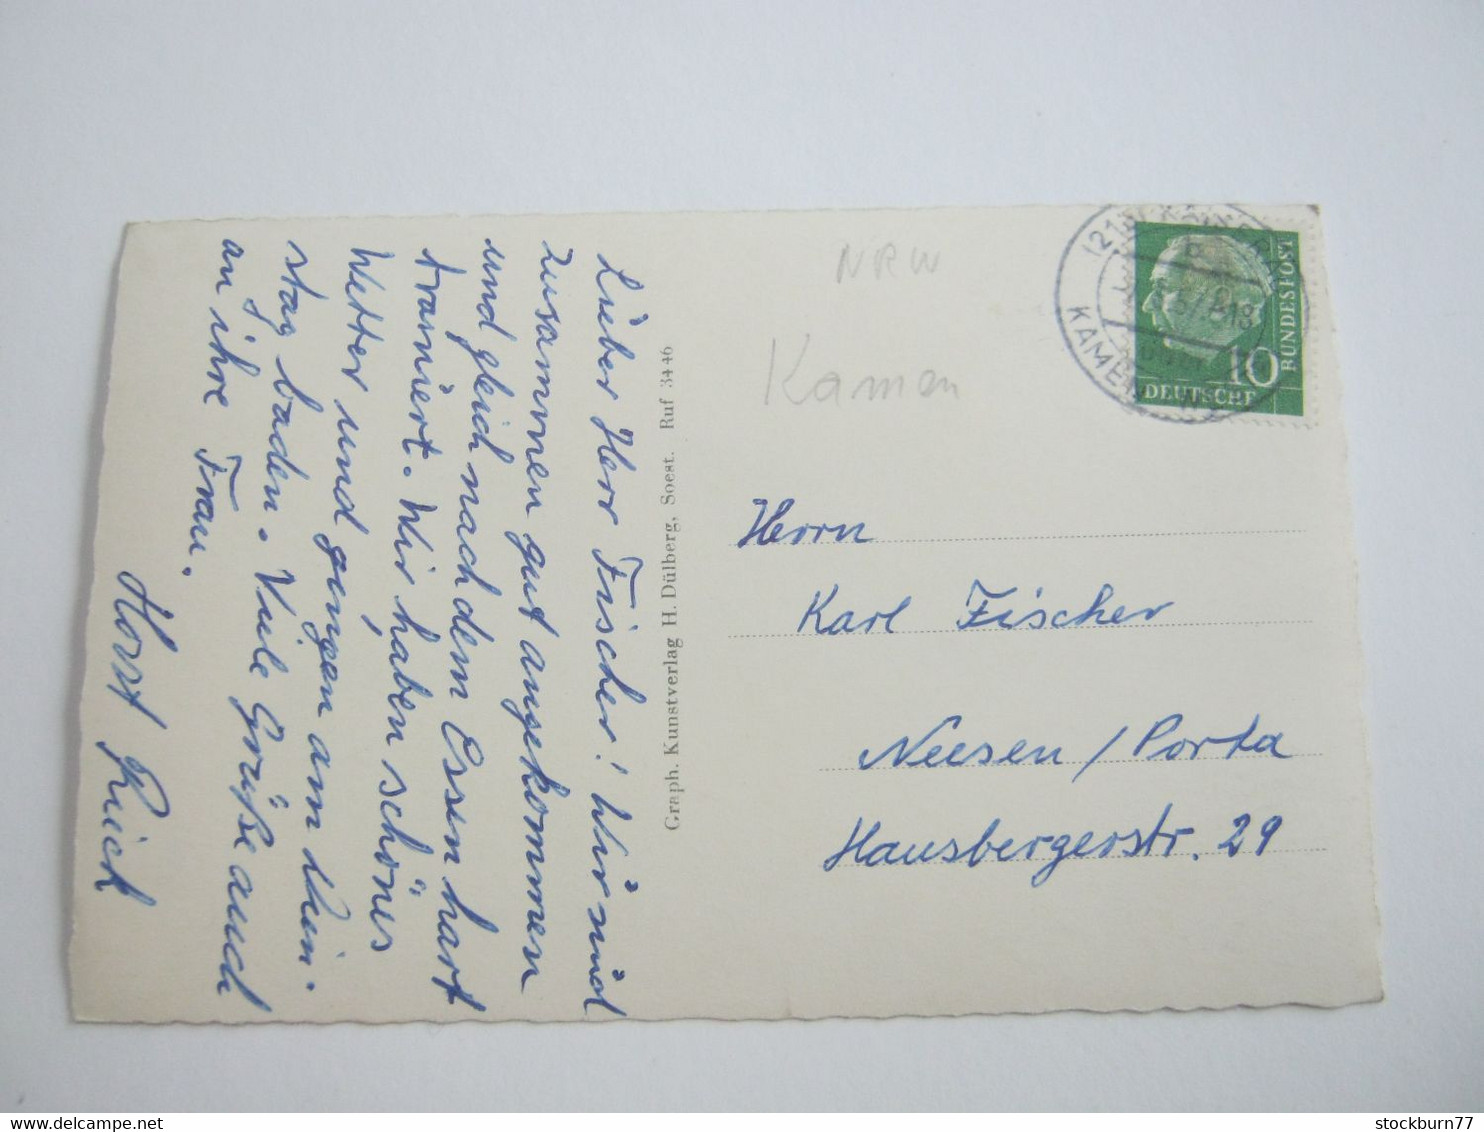 Lieber Herr Fischer! Wir sind
zusammen gut angekommen
und gleich nach dem Essen hart
trainiert. Wir haben schönes
Wetter und gingen am
stag baden. Viele Grüße auch
an ihre Frau.
Horst
Graph. Kunstverlag H. Dülberg, Soest. Ruf 3446
NRW
Kamen
KAMEN
10
DEUTSCHE
BUNDESPOST
Herrn
Karl Fischer
Neesen / Porta
Hausbergerstr. 29
stockburn77